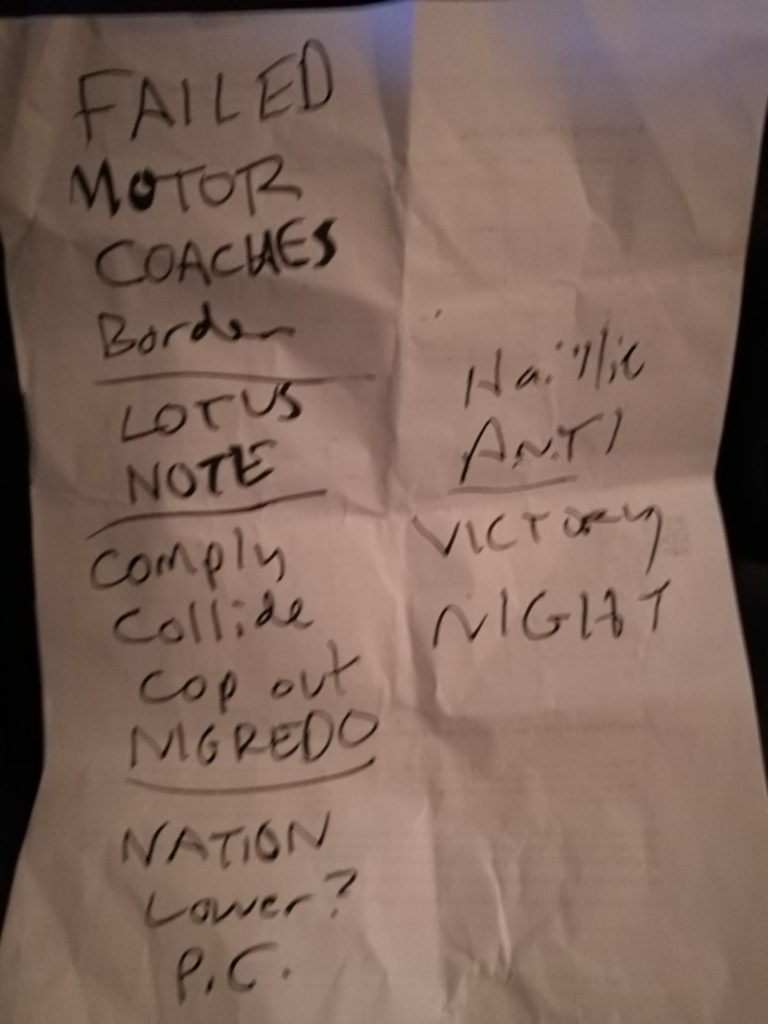 FAILED
MOTOR
COACHES
Border
LOTUS
NOTE
Comply
Collide
Cop out
NIGREDO
NATION
Lower?
P.C.
ANTI
VICTORY
NIGHT